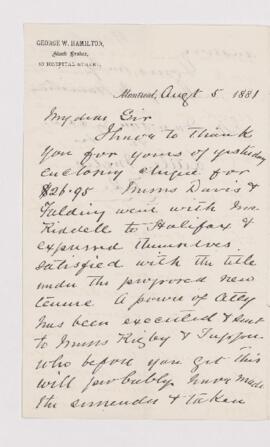 GEORGE W. HAMILTON,
Stock Broker,
HOSPITAL STREET.
Montreal, Augt 5 1881
My dear Sir
I have to thank
you for yours of yesterday
enclosing cheque for
$26.95 Messrs Davis &
Falding went with Mr
Riddell to Halifax &
expressed themselves
satisfied with the title
under the proposed new
tenure A power of Atty
has been executed & sent
to Messrs Rigby & Tupper
who before you get this
will probably have made
the surrender & taken